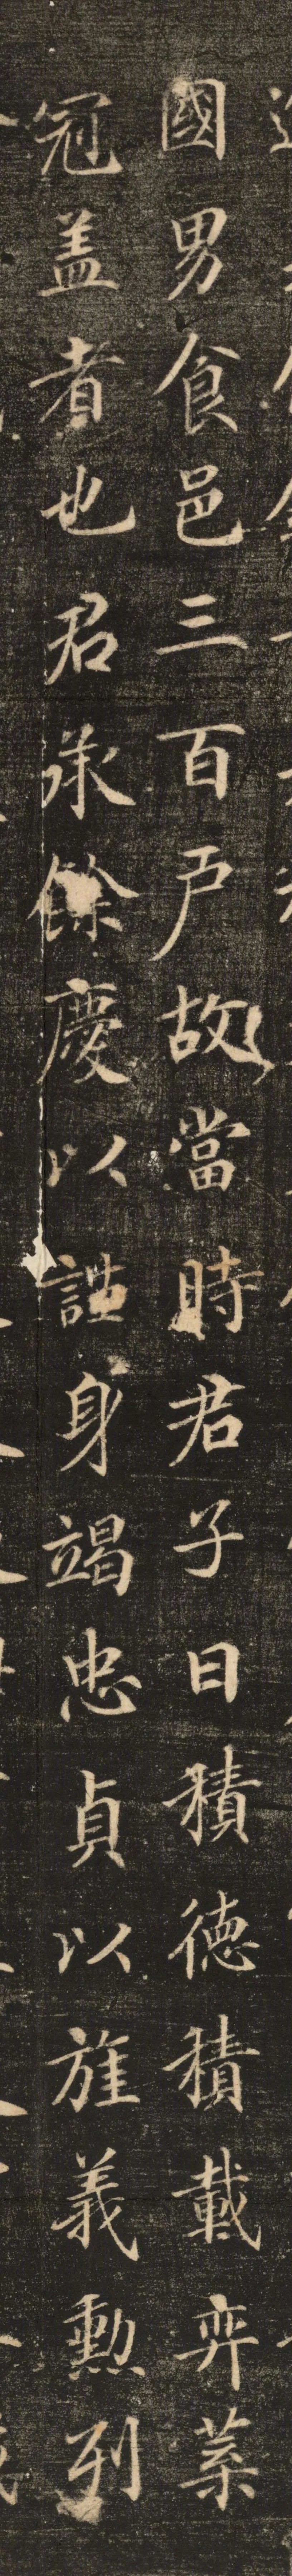 國男食邑三百戸故當時君子曰積德積載弈葉
冠盖者也君承餘慶以誕身竭忠貞以旌義勲列